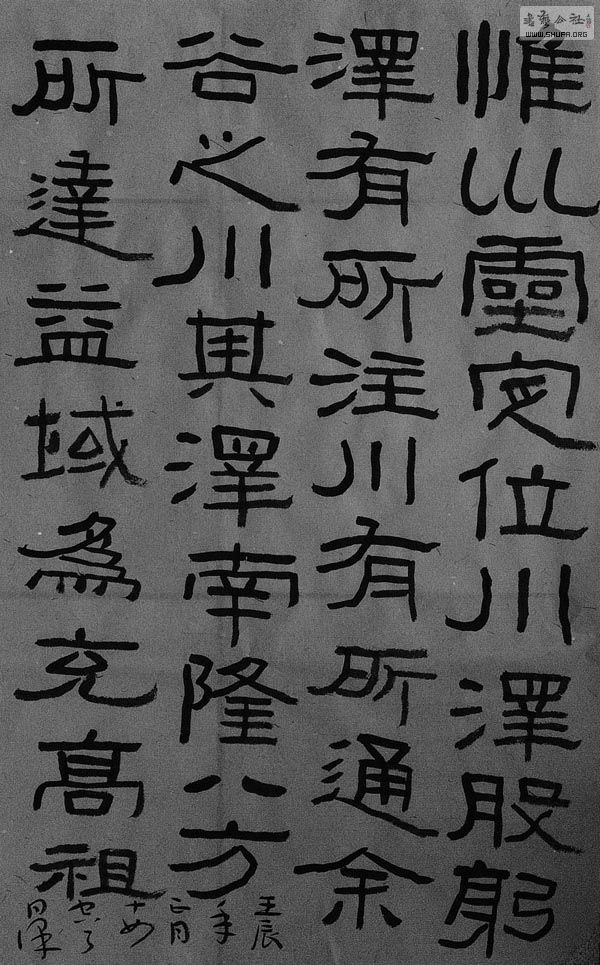 惟巛靈定位川澤股躬
澤有所注川有所通余
谷之川其澤南隆八方
所達益域爲充高祖
壬辰
年
正月
日課
書藝公社
WWW.SHUFA.ORG